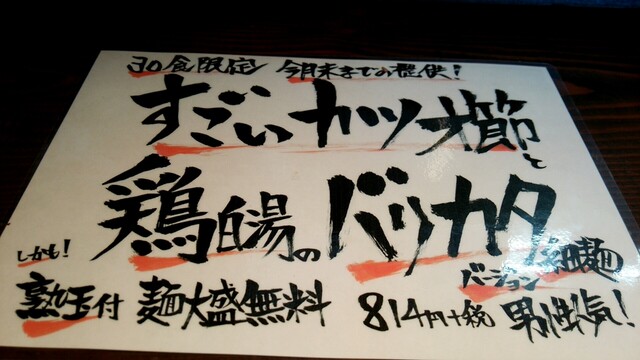 30食限定 今月末までの提供！
すごいカツオ節と
鶏白湯のバリカタ
細麺
バージョン
しかも！
熟玉付 麺大盛無料 814円+税 男性人気！